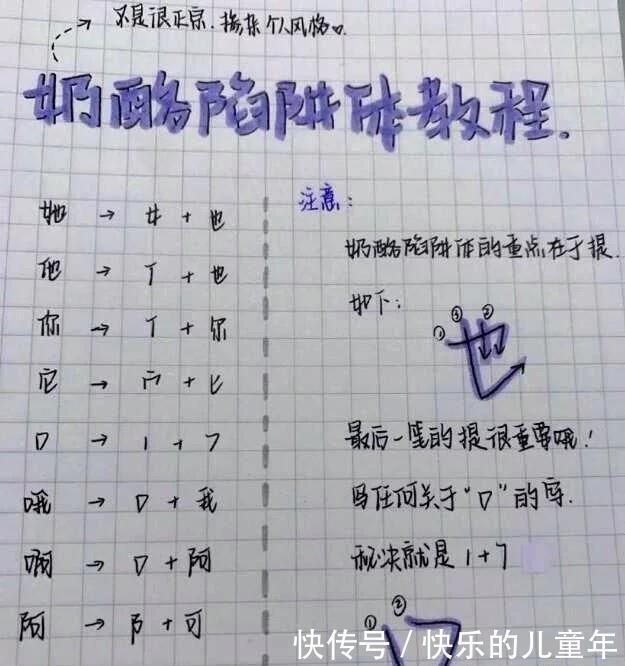 不是很正宗.掺杂个人风格
奶酪陷阱体教程.
她 → 女 + 也
他 → 亻 + 也
你 → 亻 + 尔
它 → 宀 + 匕
口 → 1 + 7
哦 → 口 + 我
啊 → 口 + 阿
阿 → 阝 + 可
注意:
奶酪陷阱体的重点在于提.
如下:
① ③ ②
也
最后一笔的提很重要哦!
写任何关于“口”的字.
秘诀就是 1+7
① ②
口
快传号 / 快乐的儿童年